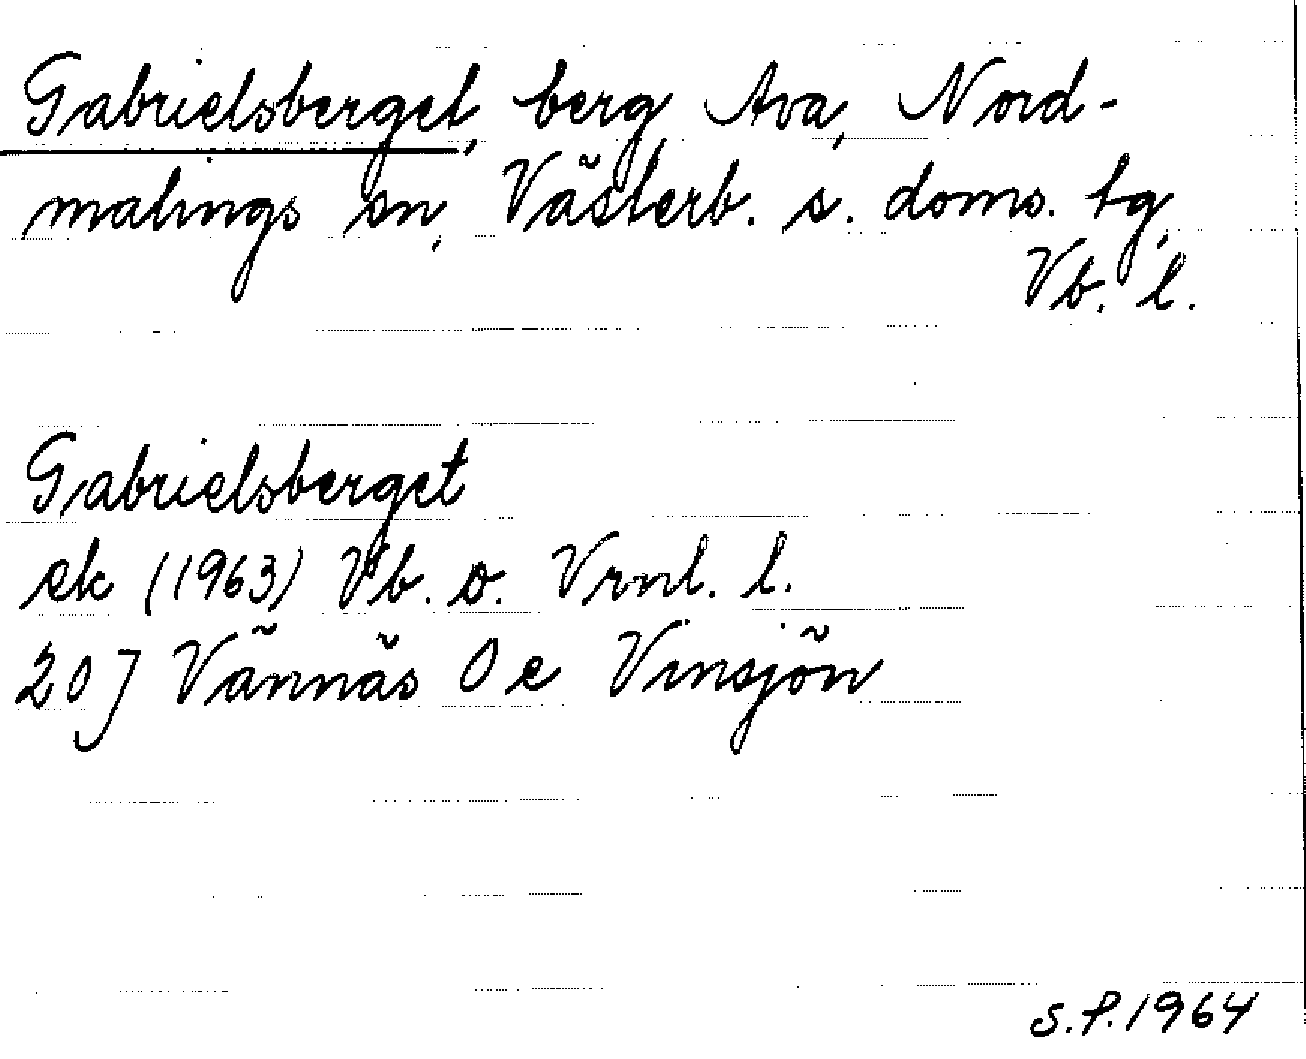 Gabrielsberget, berg Ava, Nord-
malings sn, Västerb. s. doms. tg,
Vb. l.
Gabrielsberget
ek (1963) Vb. o. Vrml. l.
20J Vännäs 0 e Vinsjön
S.P. 1964